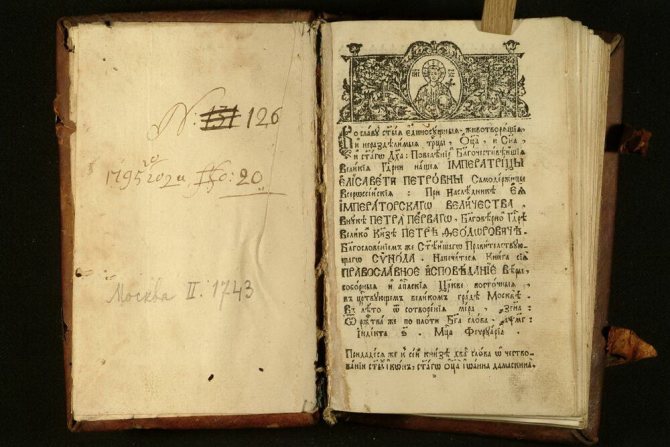 N: 131 126
1795 20
Москва II. 1743
Во славу ст҃ыѧ единосꙋщныѧ, животворѧщїѧ
и нераздѣлимыѧ трцы, Оц҃а, и Сн҃а,
и ст҃агѡ Дх҃а: Повелѣнїемъ Благочестивѣйшїѧ
Великїѧ Гд҃рни нашеѧ ІМПЕРАТРІЦЫ
ЕЛІСАВЕТИ ПЕТРОВНЫ Самодержицы
Всероссїйскїѧ: При Наслѣдникѣ ЕѦ
ІМПЕРАТОРСКАГѠ ВЕЛИЧЕСТВА
Внꙋкѣ ПЕТРА ПЕРВАГѠ, Благовѣрномъ Гд҃рѣ
Великомъ Кн҃зѣ ПЕТРѢ ѲЕОДОРОВИЧѢ.
Благословенїемъ же Ст҃ѣйшагѡ Правителствꙋю-
щагѡ СѴНОДА. Напечатасѧ Книга сїѧ
ПРАВОСЛАВНОЕ ИСПОВѢДАНІЕ Вѣры,
соборныѧ и ап҃лскїѧ Цр҃кве восточныѧ,
въ цр҃твꙋющемъ великомъ градѣ Москвѣ.
В лѣто ѿ сотворенїѧ мїра ҂зсна:
Ѿ рж҃тва же по плоти Бг҃а слова ҂аѱмг:
Їндїкта Мц҃а Феврꙋарїа
Придадесѧ же и сей книзѣ слова ѡ чество-
ванїи ст҃ыхъ їкѡнъ, ст҃агѡ Оц҃а Їѡанна дамаскина.